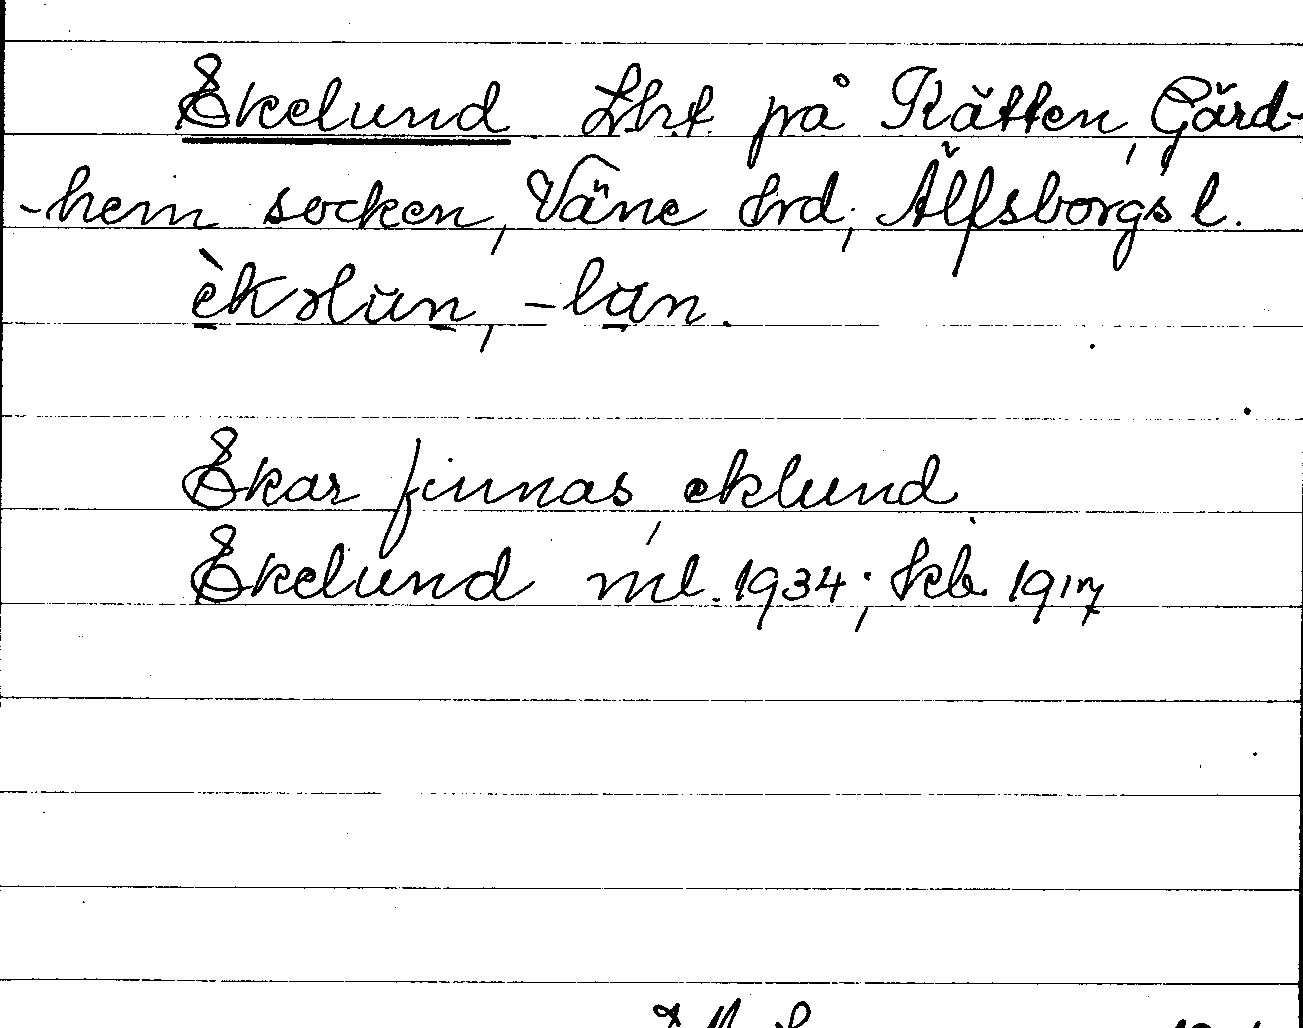 Ekelund. Lht. på Rätten, Gärd-
-hem socken, Väne hrd, Älfsborgs l.
èkəlùn, -lun.
Ekar finnas, eklund.
Ekelund ml. 1934; kb. 1917